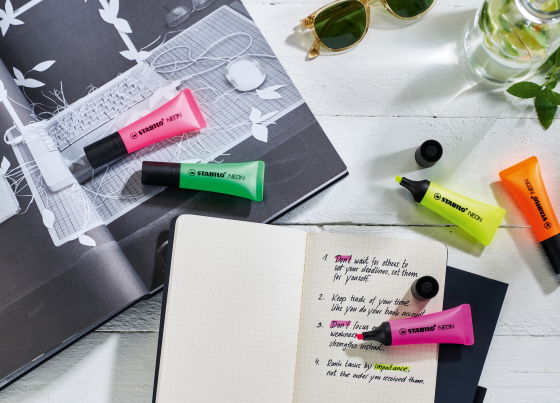 STABILO NEON
STABILO NEON
STABILO NEON
STABILO
1. Don't wait for others to
set your deadlines, set them
for yourself.
2. Keep track of your time
like you do your bank account
3. Don't focus
weakness
strengths instead.
STABILO NEON
4. Rank tasks by importance,
not the order you received them.